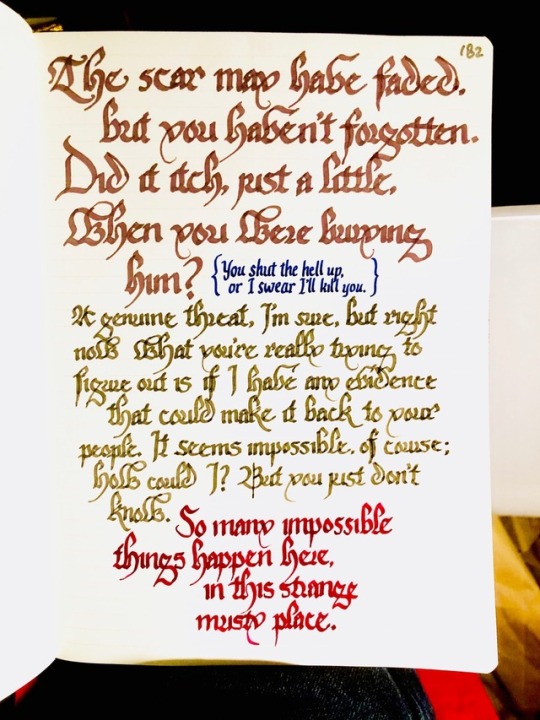 182
The scar may have faded,
but you haven't forgotten.
Did it itch, just a little,
When you Were burying
him? {You shut the hell up,
or I swear I'll kill you.}
A genuine threat, I'm sure, but right
noW What you're really trying to
figure out is if I have any evidence
that could make it back to your
people. It seems impossible, of course;
hoW could I? But you just don't
knoW. So many impossible
things happen here,
in this strange
musty place.